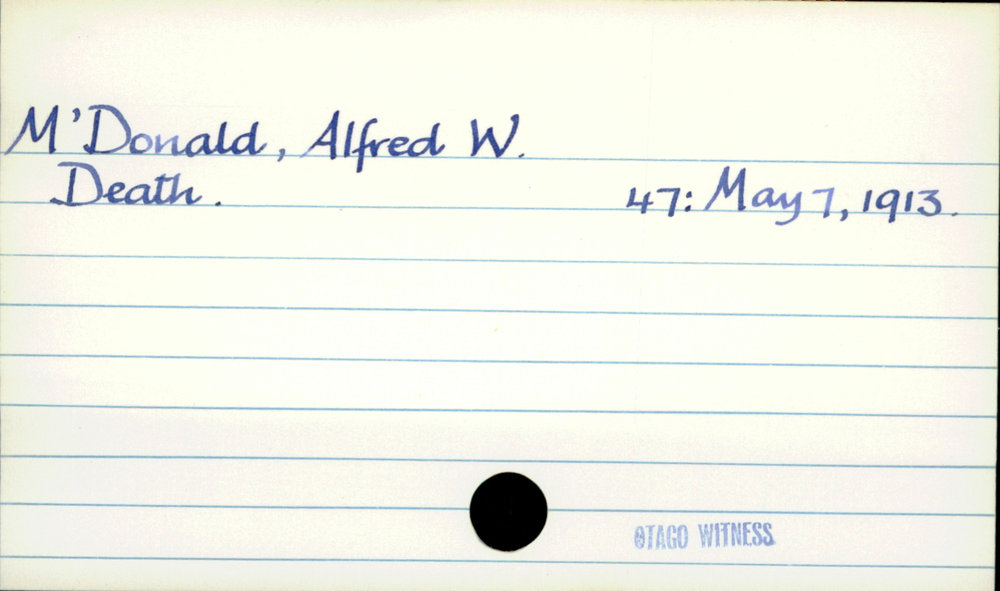 M'Donald, Alfred W.
Death. 47: May 7, 1913.
OTAGO WITNESS